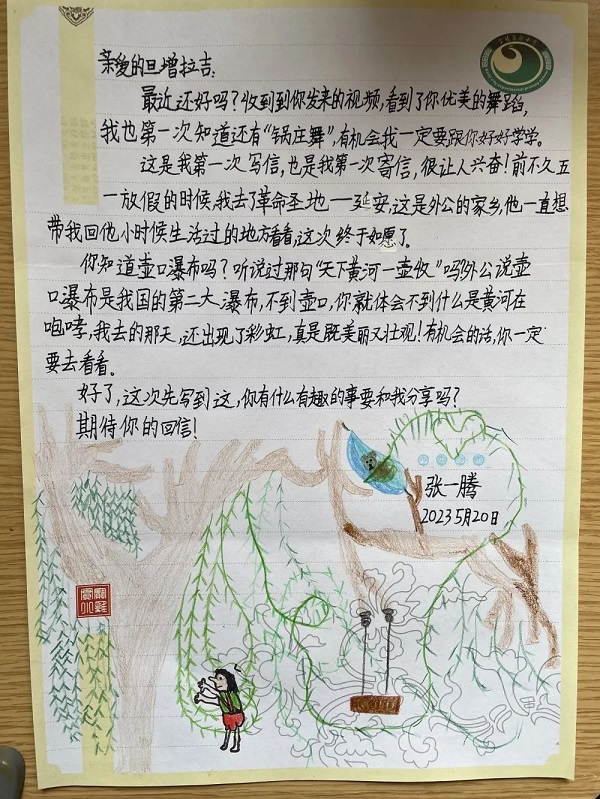 亲爱的旦增拉吉：
最近还好吗？收到到你发来的视频，看到了你优美的舞蹈，
我也第一次知道还有“锅庄舞”，有机会我一定要跟你好好学学。
这是我第一次写信，也是我第一次寄信，很让人兴奋！前不久五
一放假的时候，我去了革命圣地——延安，这是外公的家乡，他一直想
带我回他小时候生活过的地方看看，这次终于如愿了。
你知道壶口瀑布吗？听说过那句“天下黄河一壶收”吗？外公说壶
口瀑布是我国的第二大瀑布，不到壶口，你就体会不到什么是黄河在
咆哮，我去的那天，还出现了彩虹，真是既美丽又壮观！有机会的话，你一定
要去看看。
好了，这次先写到这，你有什么有趣的事要和我分享吗？
期待你的回信！
张一腾
2023 5月20日